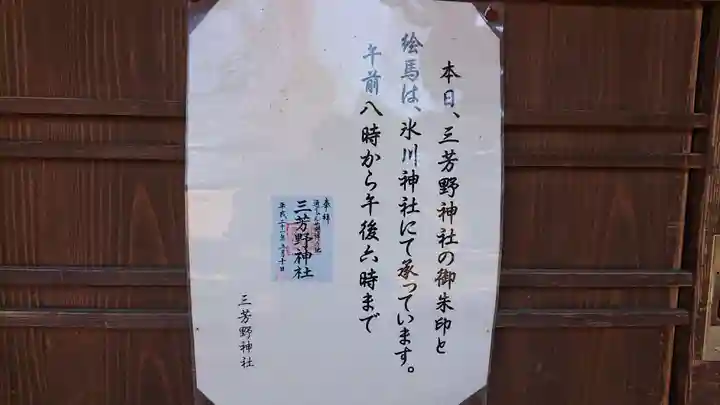 本日、三芳野神社の御朱印と
絵馬は、氷川神社にて承っています。
午前八時から午後六時まで
奉拝
三芳野神社
三芳野神社